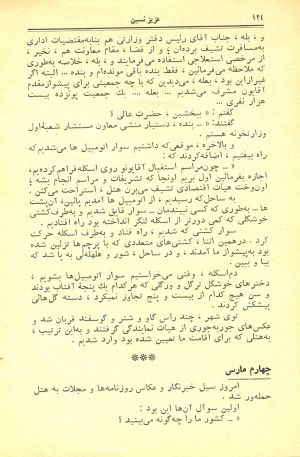 ۱۲۴ عزیز نسین
و ، بله ، جناب آقای رئیس دفتر وزارتی هم بنابه‌مقتضیات اداری
به‌مسافرت تشریف برده‌ان و از قضا ، مقام معاونت هم ، نخیر ،
از مرخصی استعلاجی استفاده می‌فرمایند و ، بله ، خلاصه به‌طوری
که ملاحظه می‌فرمائین ، فقط بنده باقی مونده‌ام و بنده ... البته اگر
غیرازاین بود ، بعله ، می‌دیدین که با چه جمعیتی برای پیشوازمقدم
آقایون مشرف می‌شدیم ... بعله .... یك جمعیت پونزده بیست
هزار نفری ...
گفتم : «ـ ببخشین ، حضرت عالی ؟
گفتند: «ـ بنده ، دستیار منشی معاون مستشار شعبهٔ‌اول
وزارتخونه هستم .
و بالاخره ، موقعی‌که داشتیم سوار اتومبیل ها می‌شدیم‌که
راه بیفتیم ، اضافه‌کردند که :
«ـ چون‌مراسم استقبال آقایونو روی اسکله فراهم‌کرده‌ایم،
اجازه بفرمائین اول بریم اونجا که تشریفات و مراسم انجام بشه ؛
اون‌وخت هیات اقتصادی تشیف می‌برن هتل ، استراحت می‌کنن .
به ساحل‌که رسیدیم ، از اتومبیل ها آمدیم پائین، آن‌پشت
ها ـ به‌طوری که کسی نبیندمان ـ سوار قایق شدیم و به‌طرف‌کشتی
خوشگلی که کمی دورتر از اسکله لنگر انداخته بود راه افتادیم .
سوار کشتی که شدیم ، راه فتاد و به‌طرف اسکله حرکت
کرد . درهمین اثنا ، کشتی‌های متعددی که با پرچم‌ها تزئین شده
بود به‌پیشواز ما آمدند ، و در ساحل ، شور و هلهله‌ئی به پا شد که
بیا و ببین .
دم‌اسکله ، وقتی می‌خواستیم سوار اتومبیل‌ها بشویم ،
دخترهای خوشگل ترگل و ورگلی که هرکدام یك پنجهٔ آفتاب بودند
و سن هیچ کدام از بیست و پنج تجاوز نمیکرد ، دسته گل‌هائی
پیشکش کردند .
توی شهر ، چند راس گاو و شتر و گوسفند قربان شد و
عکس‌های جوربه‌جوری از هیات نمایندگی گرفتند و به‌این ترتیب ،
به‌هتلی که برای اقامت ما تعیین شده بود وارد شدیم .
***
چهارم مارس
امروز سیل خبرنگار و عکاس روزنامه‌ها و مجلات به هتل
حمله‌ور شد .
اولین سوآل آن‌ها این بود :
«ـ کشور ما را چه‌گونه می‌بینید ؟